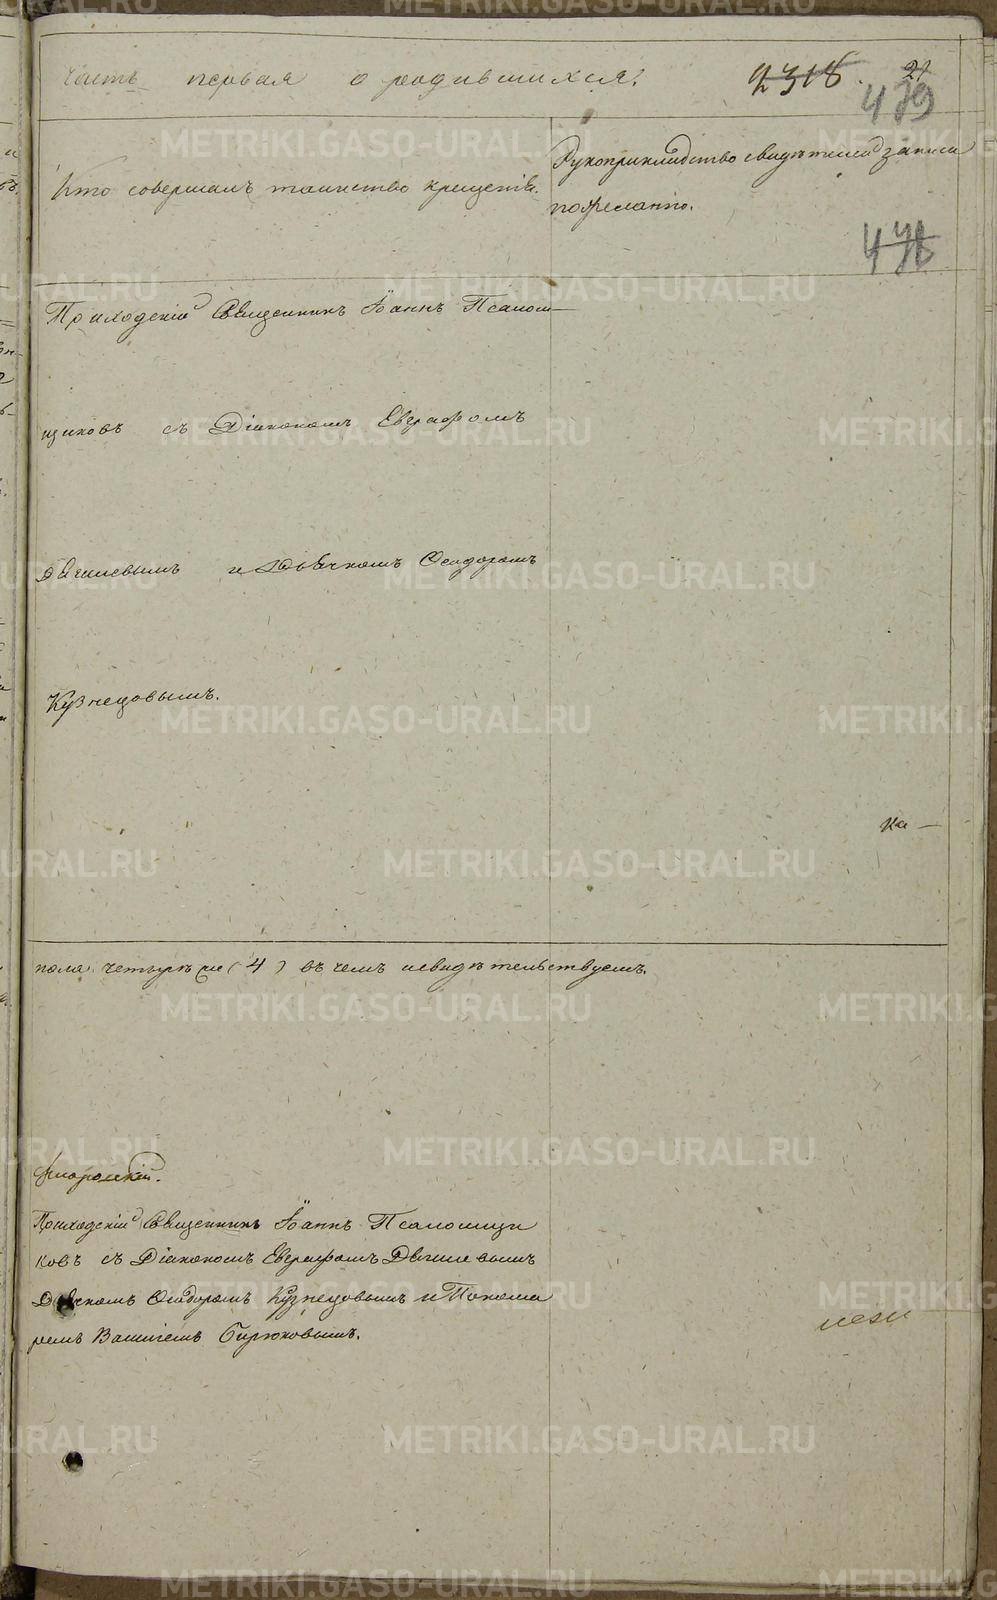 Часть первая о родившихся.
2318. 21
479
Кто совершалъ таинство крещенія.
Рукоприкладство свидѣтелей записи
по желанію.
478
Приходскій Священникъ Іоаннъ Псалом—
щиковъ съ Діакономъ Евграфомъ
и Дьячкомъ Ѳеодоромъ
Кузнецовымъ.
пола четыре (4) въ чемъ и свидѣтельствуемъ.
Приходскій Священникъ Іоаннъ Псаломщи
ковъ съ Діакономъ Евграфомъ
Дьячкомъ Ѳеодоромъ Кузнецовымъ и Понома
ремъ Бирюковымъ.
METRIKI.GASO-URAL.RU